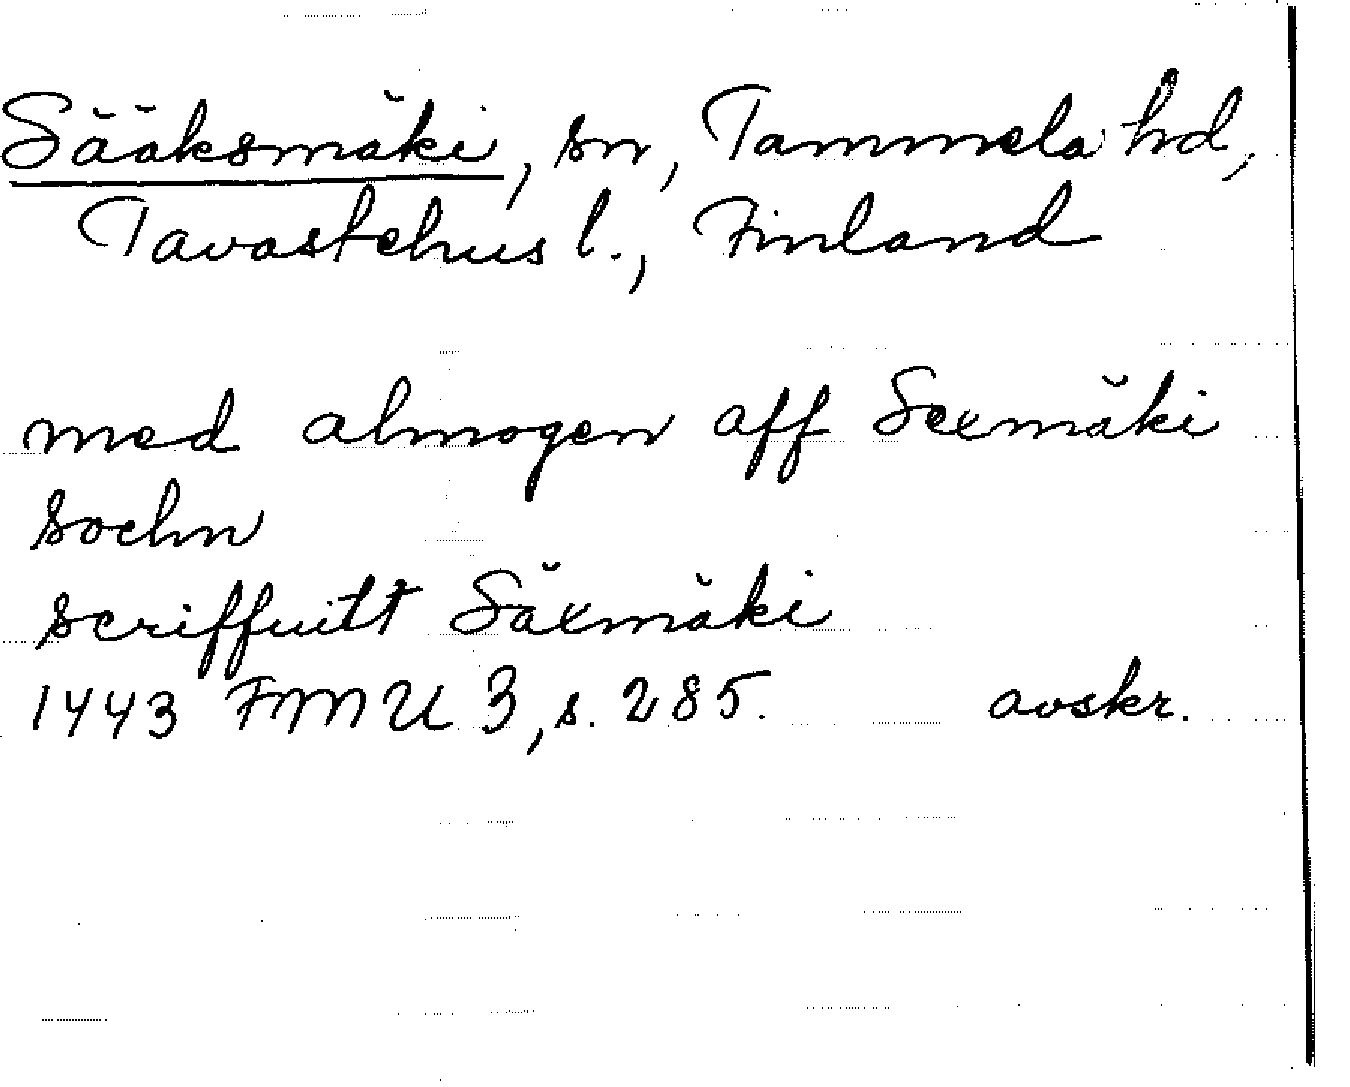 Sääksmäki, sn, Tammela hd,
Tavastehus l., Finland
med almogen aff Sexmäki
sochn
scriffuitt Säxmäki
1443 FMU 3, s. 285. avskr.